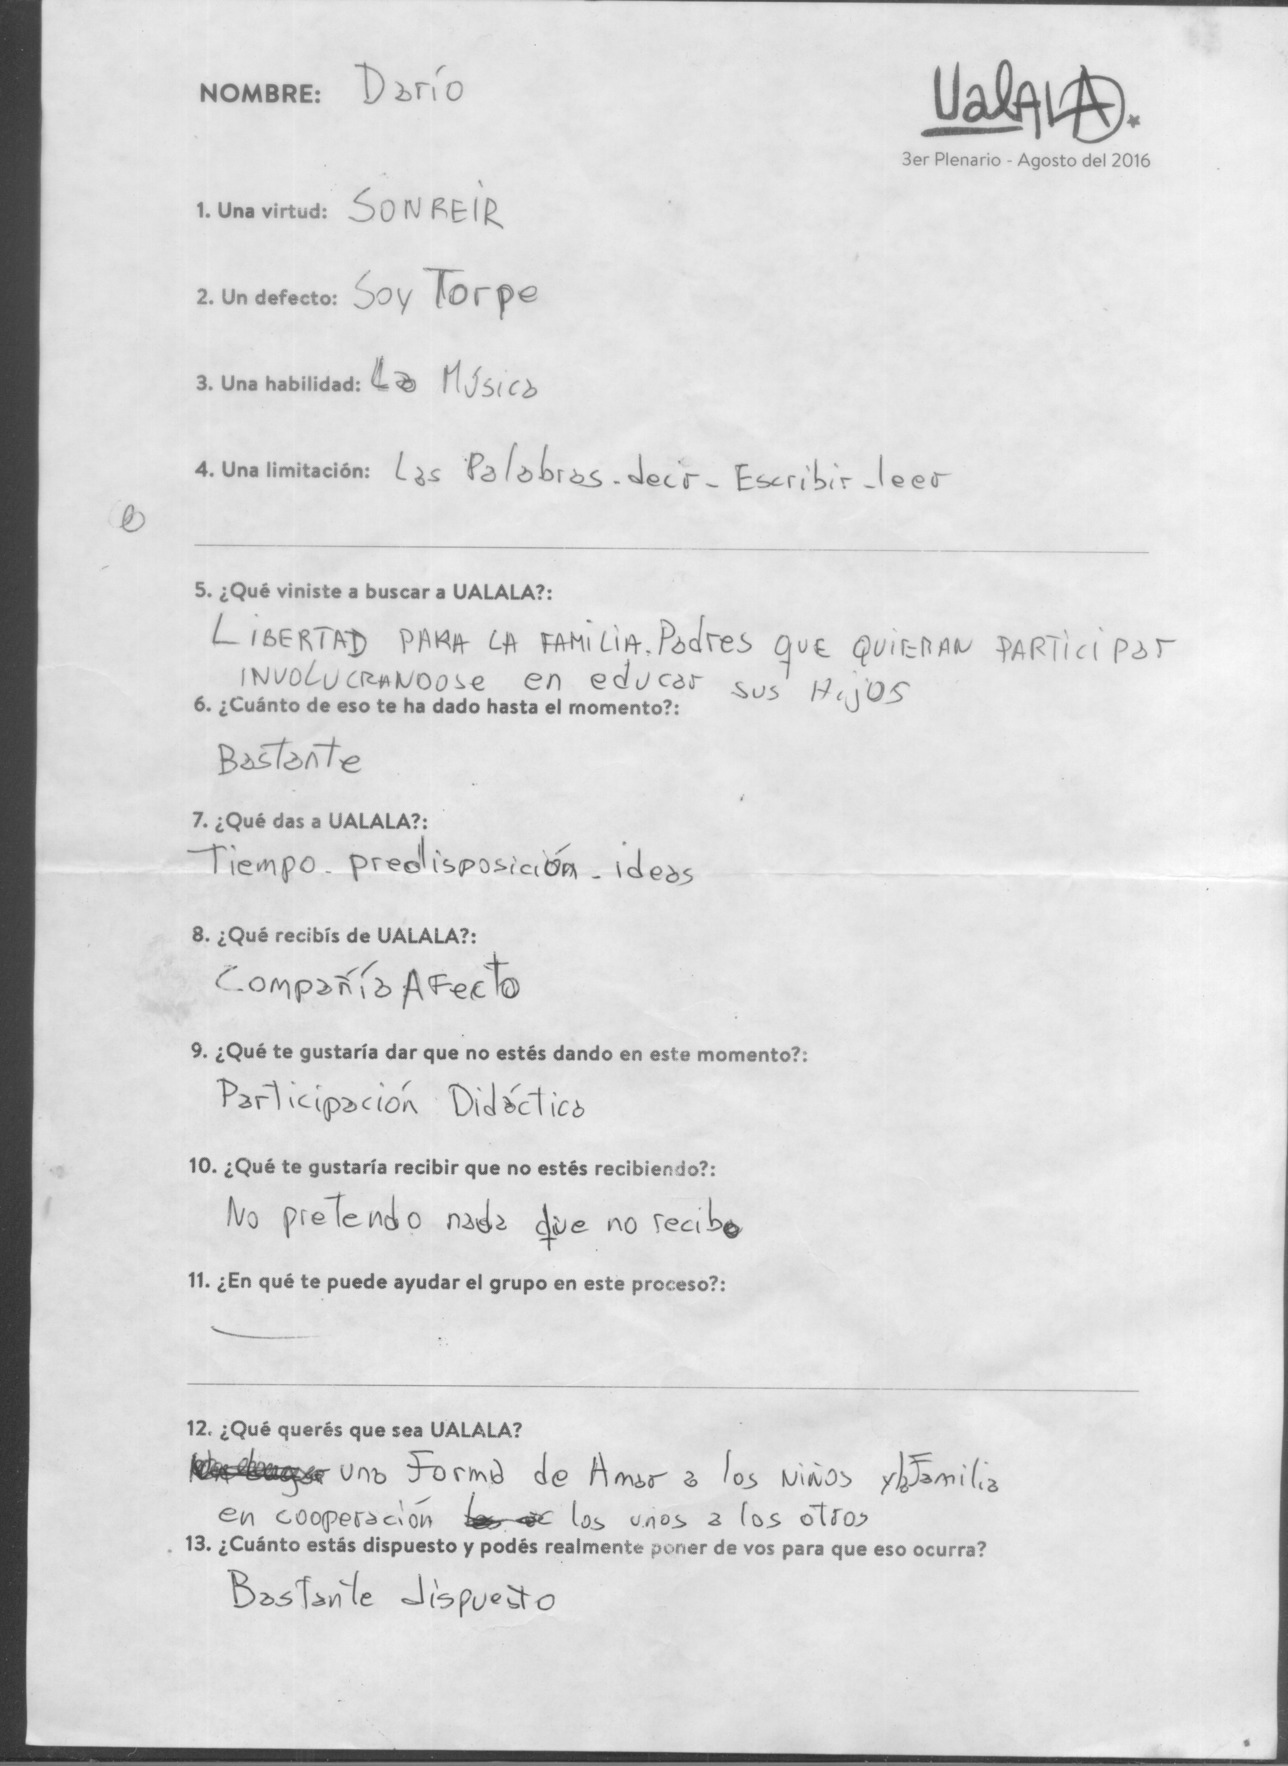 NOMBRE: Darío
UalALA.
3er Plenario - Agosto del 2016
1. Una virtud: SONREIR
2. Un defecto: Soy Torpe
3. Una habilidad: La Música
4. Una limitación: Las Palabras - decir - Escribir - leer
5. ¿Qué viniste a buscar a UALALA?:
LIBERTAD PARA LA FAMILIA. Padres que QUIERAN PARTICIPar
INVOLUCRANDOSe en educar sus HijOS
6. ¿Cuánto de eso te ha dado hasta el momento?:
Bastante
7. ¿Qué das a UALALA?:
Tiempo - predisposición - ideas
8. ¿Qué recibís de UALALA?:
Compañía Afecto
9. ¿Qué te gustaría dar que no estés dando en este momento?:
Participación Didáctica
10. ¿Qué te gustaría recibir que no estés recibiendo?:
No pretendo nada que no recibo
11. ¿En qué te puede ayudar el grupo en este proceso?:
12. ¿Qué querés que sea UALALA?
una Forma de Amar a los Niños y la Familia
en cooperación los unos a los otros
13. ¿Cuánto estás dispuesto y podés realmente poner de vos para que eso ocurra?
Bastante dispuesto